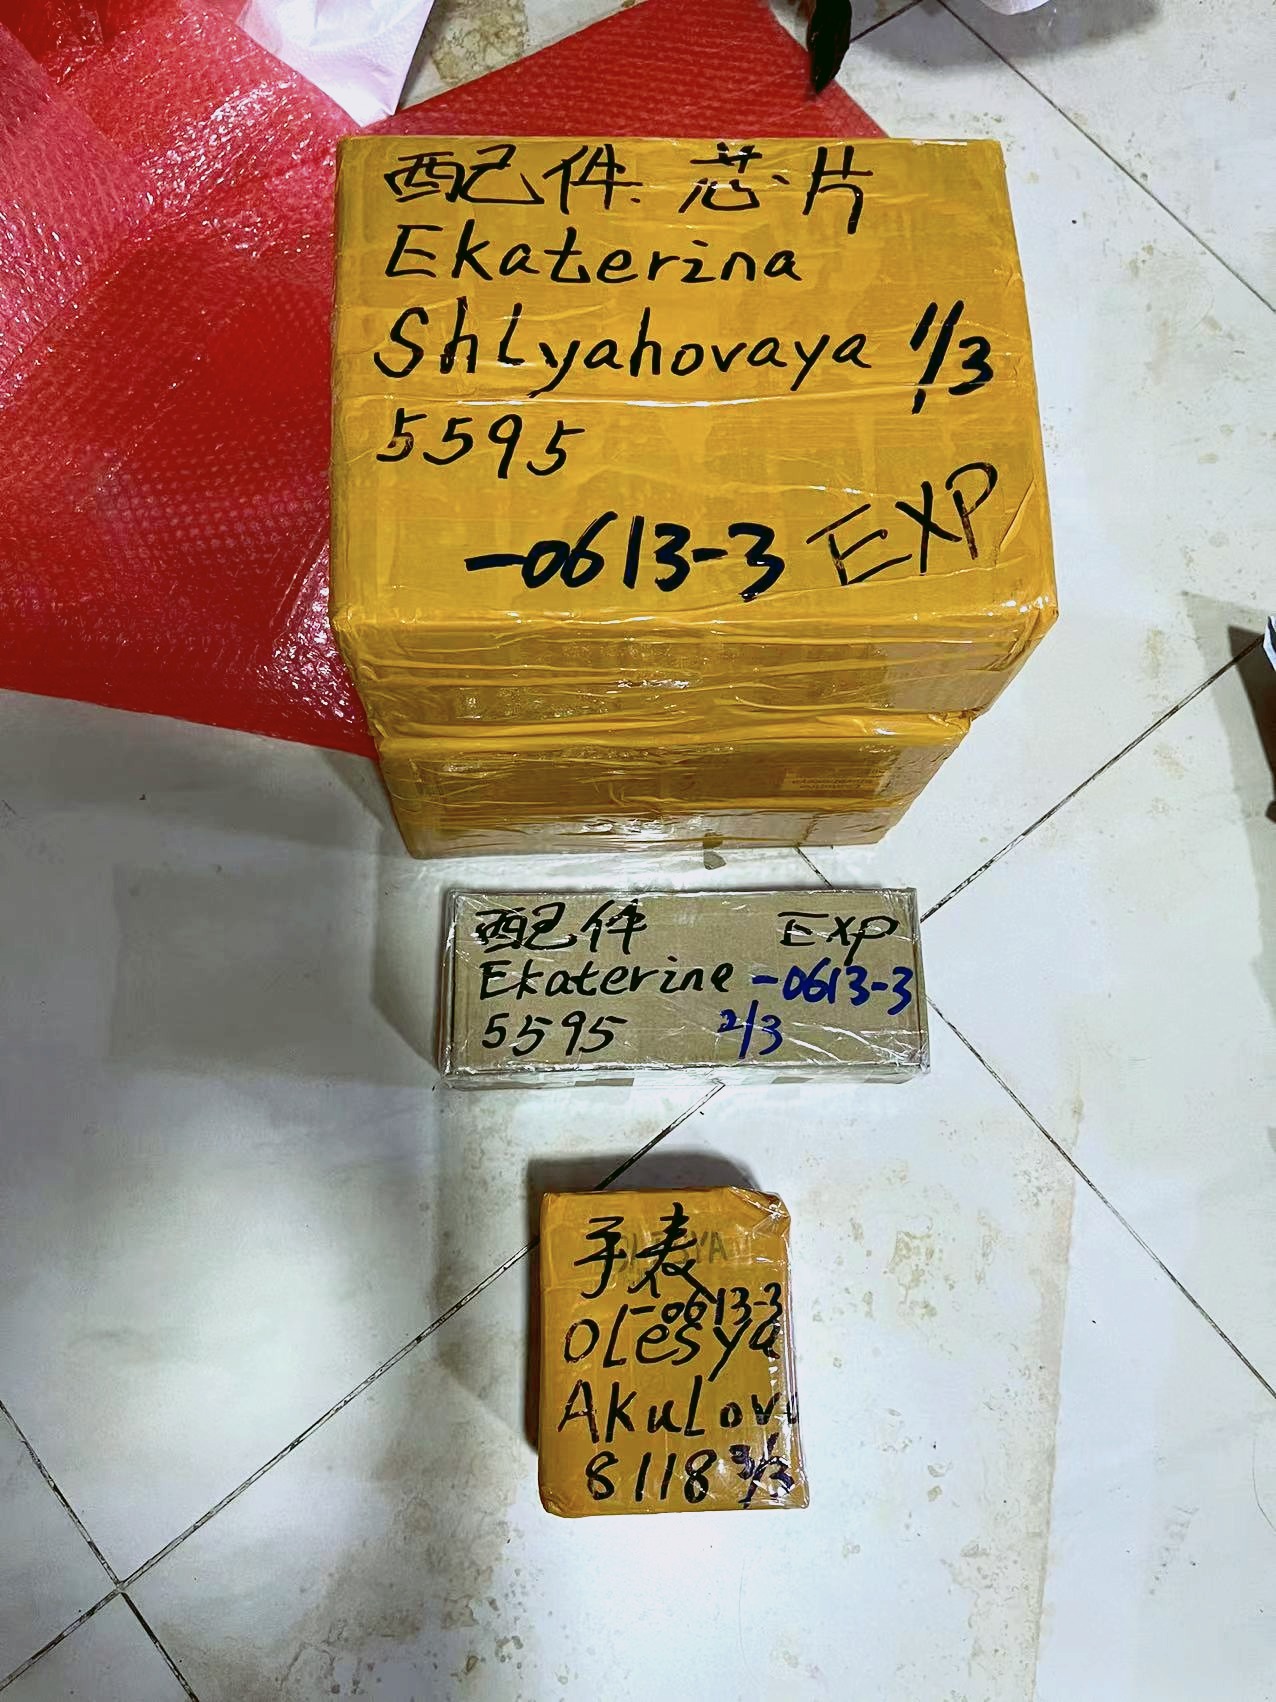 配件 芯片
Ekaterina
Shlyahovaya 1/3
5595
-0613-3 EXP
配件 EXP
Ekaterine -0613-3
5595 2/3
手表
-0613-3
Olesya
Akulov
8118 3/3